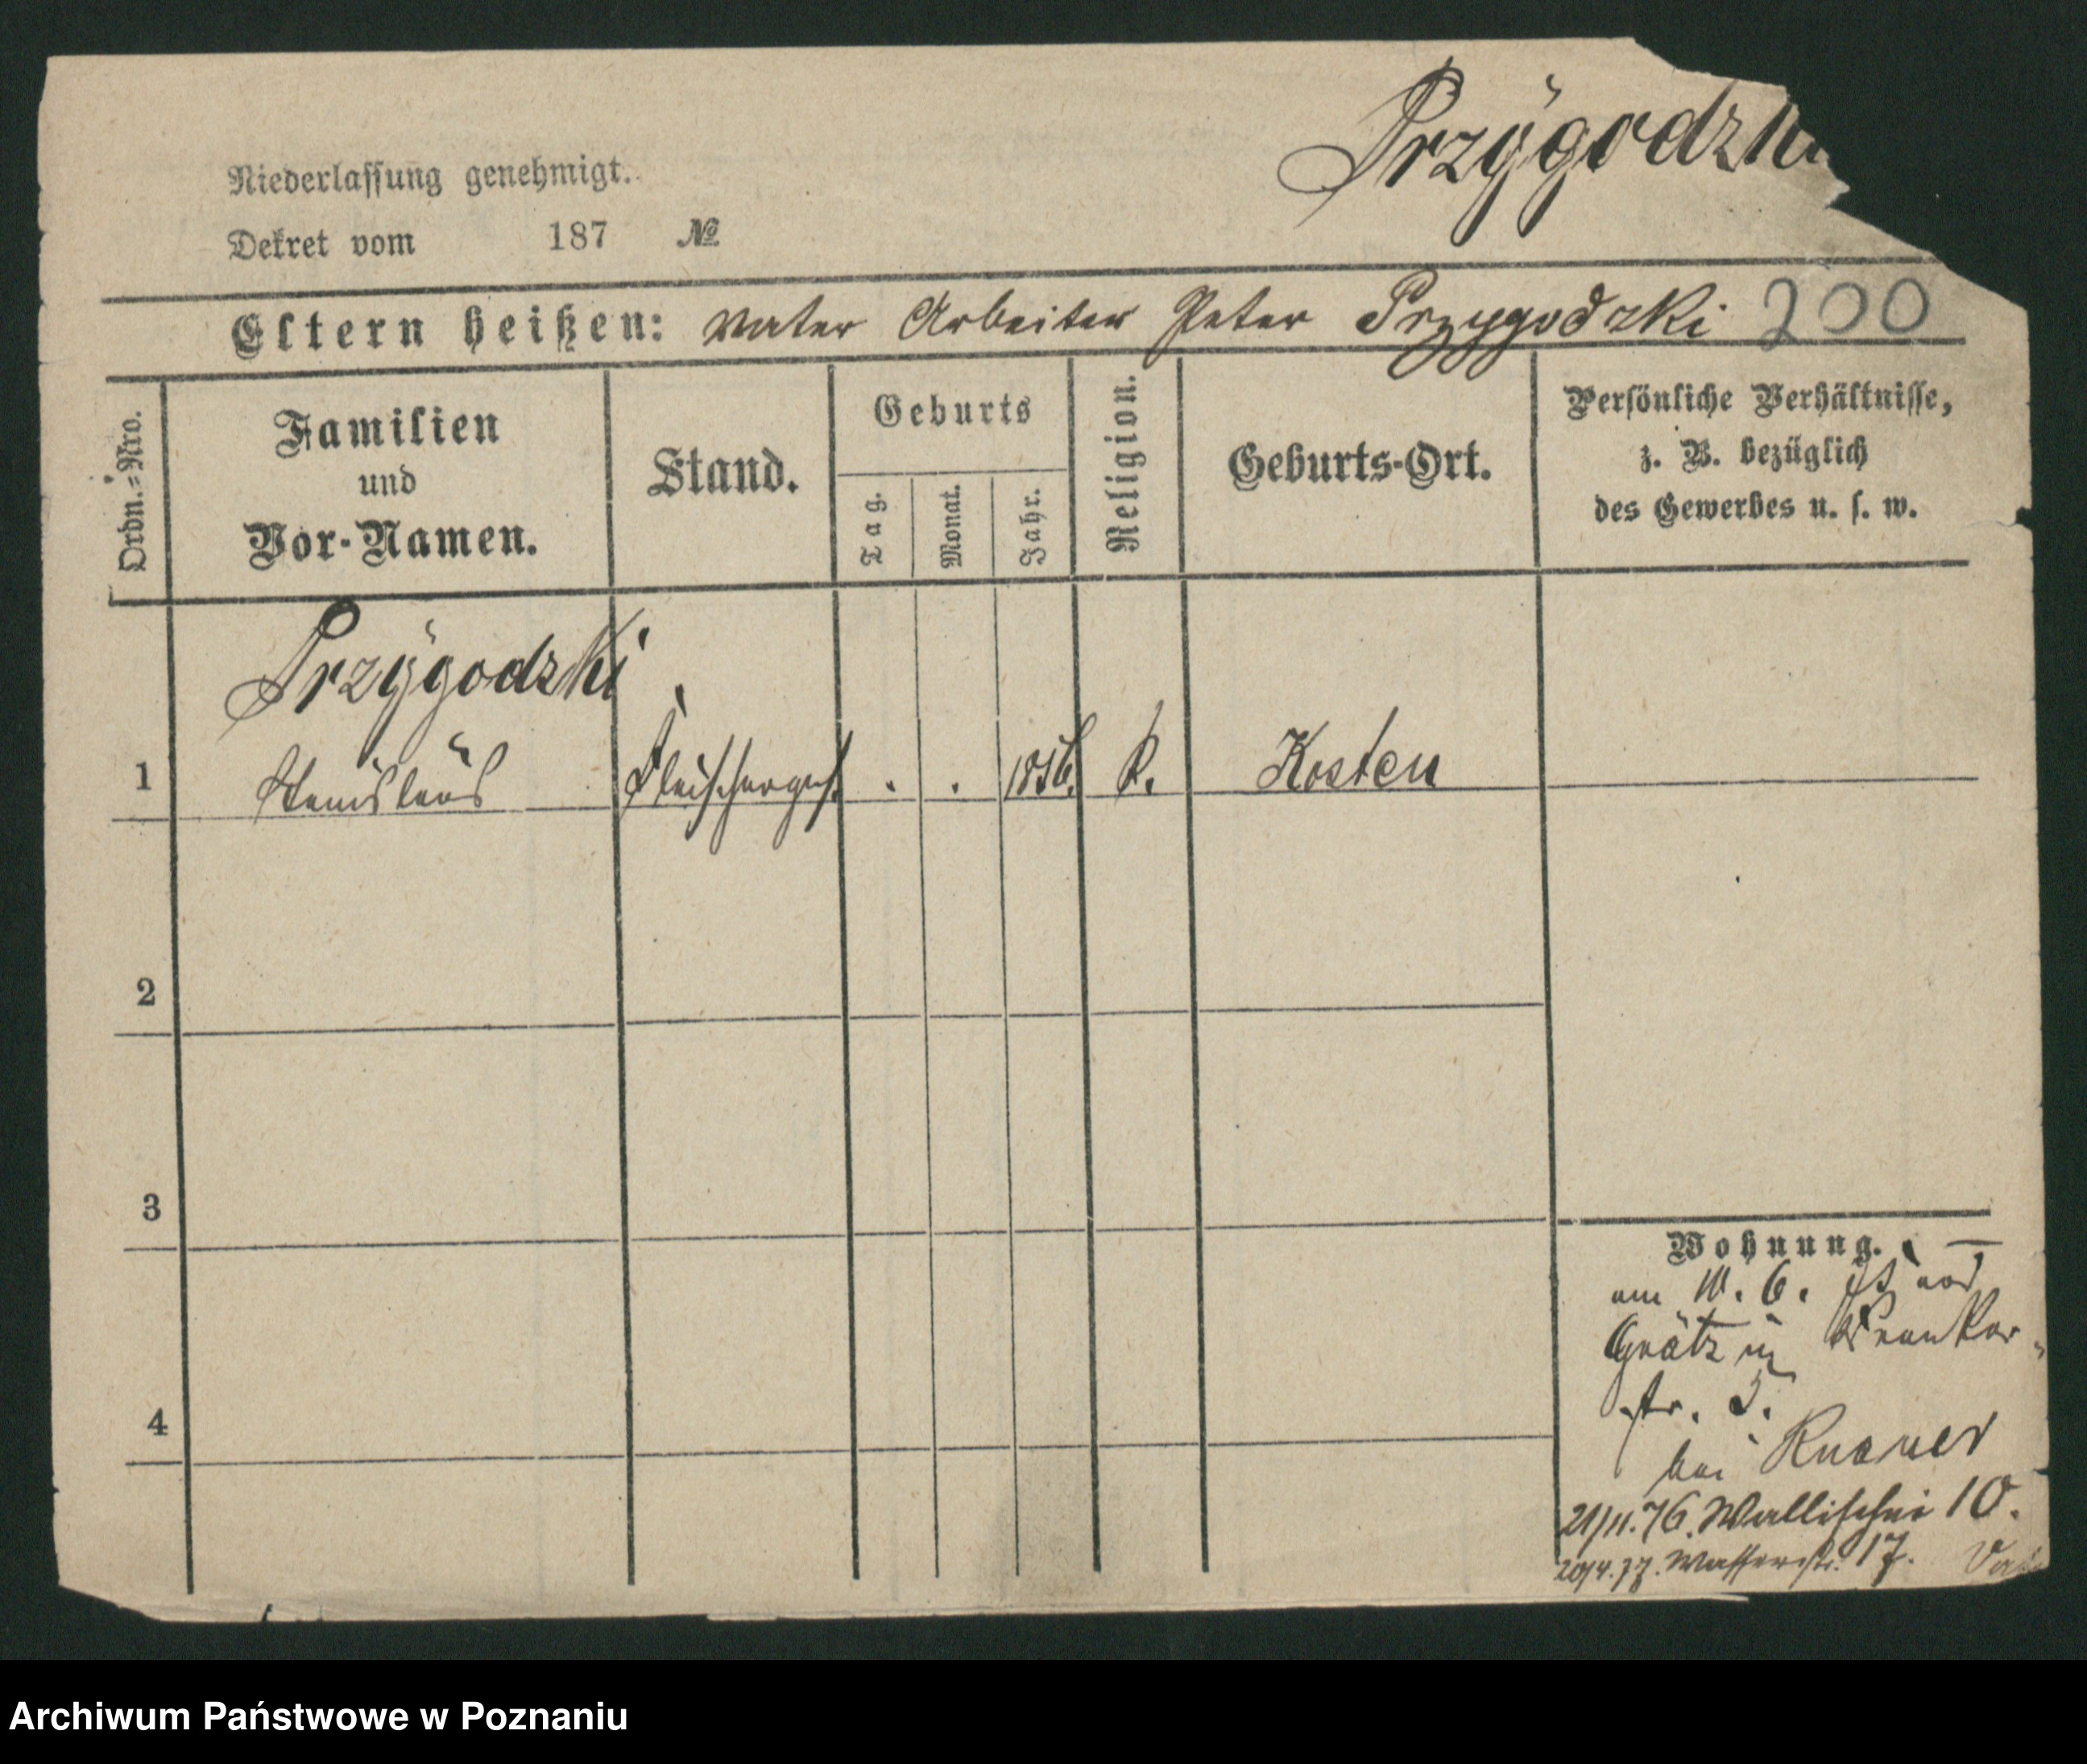 Przygodzki
Niederlassung genehmigt.
Dekret vom 187 №
Eltern heißen: Vater Arbeiter Peter Przygodzki 200
Ordn.-Nro.
Familien
und
Vor-Namen.
Stand.
Geburts
Tag.
Monat.
Jahr.
Religion.
Geburts-Ort.
Persönliche Verhältnisse,
z. B. bezüglich
des Gewerbes u. s. w.
Przygodzki
1 Stanislaus Fleischerges. . . 1856. K. Kosten
2
3
4
Wohnung.
am 10. 6.
Grätz in
str. 3.
bei
21/11.76. Wallischei 10.
20/4.77. Wasserstr. 17.
Archiwum Państwowe w Poznaniu